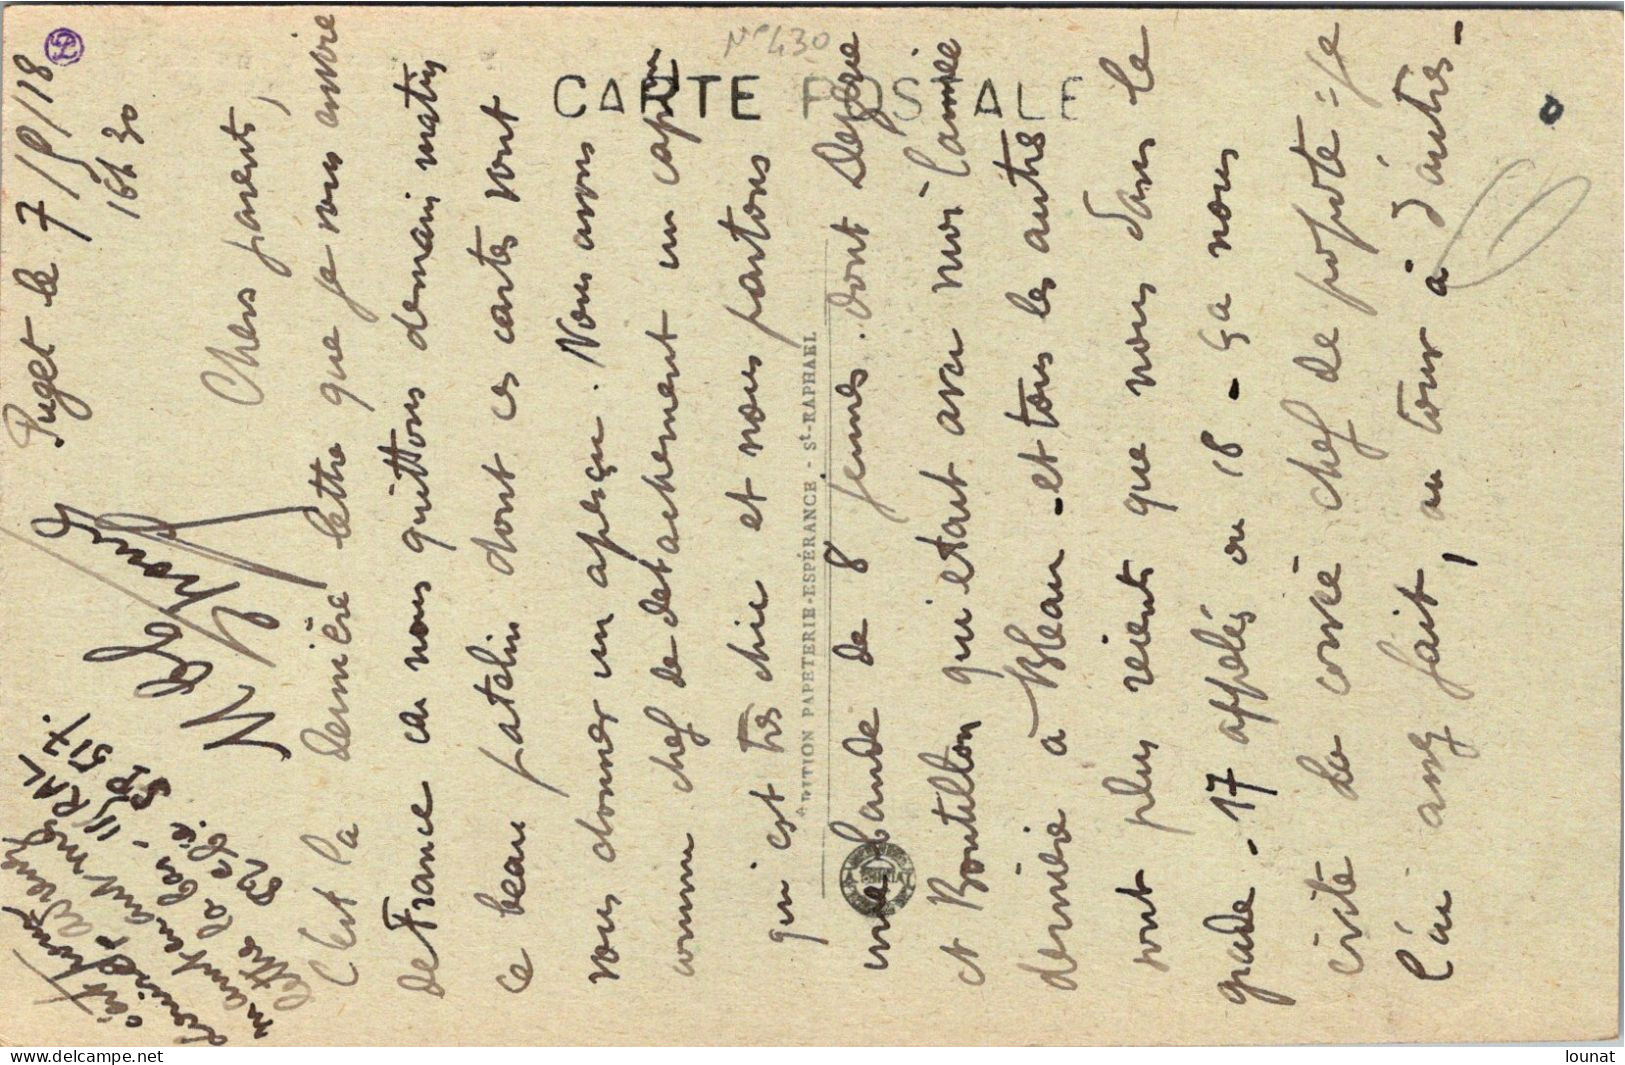 Puget le 7/9/18
16h30
Chers parents,
C'est la dernière lettre que je vous envoie
de France car nous quittons demain matin
ce beau patelin dont ces cartes vont
vous donner un aperçu. Nous avons
comme chef de detachement un capon
qui est très chic et nous partons
une bande de 8 jeunes. dont Defrie
et Bouteillon qui etant avec moi l'année
dernière à Bleau - et tous les autres
sont plus recents que nous dans le
grade - 17 appelés ou 18 - ça nous
evite la corvée chef de popote = je
l'ai assez fait, au tour à d'autres -
lettre là bas - 111 RAL
82e Bie SP 517.
N° 430
CARTE POSTALE
EDITION PAPETERIE-ESPÉRANCE - St-RAPHAEL
www.delcampe.net
lounat